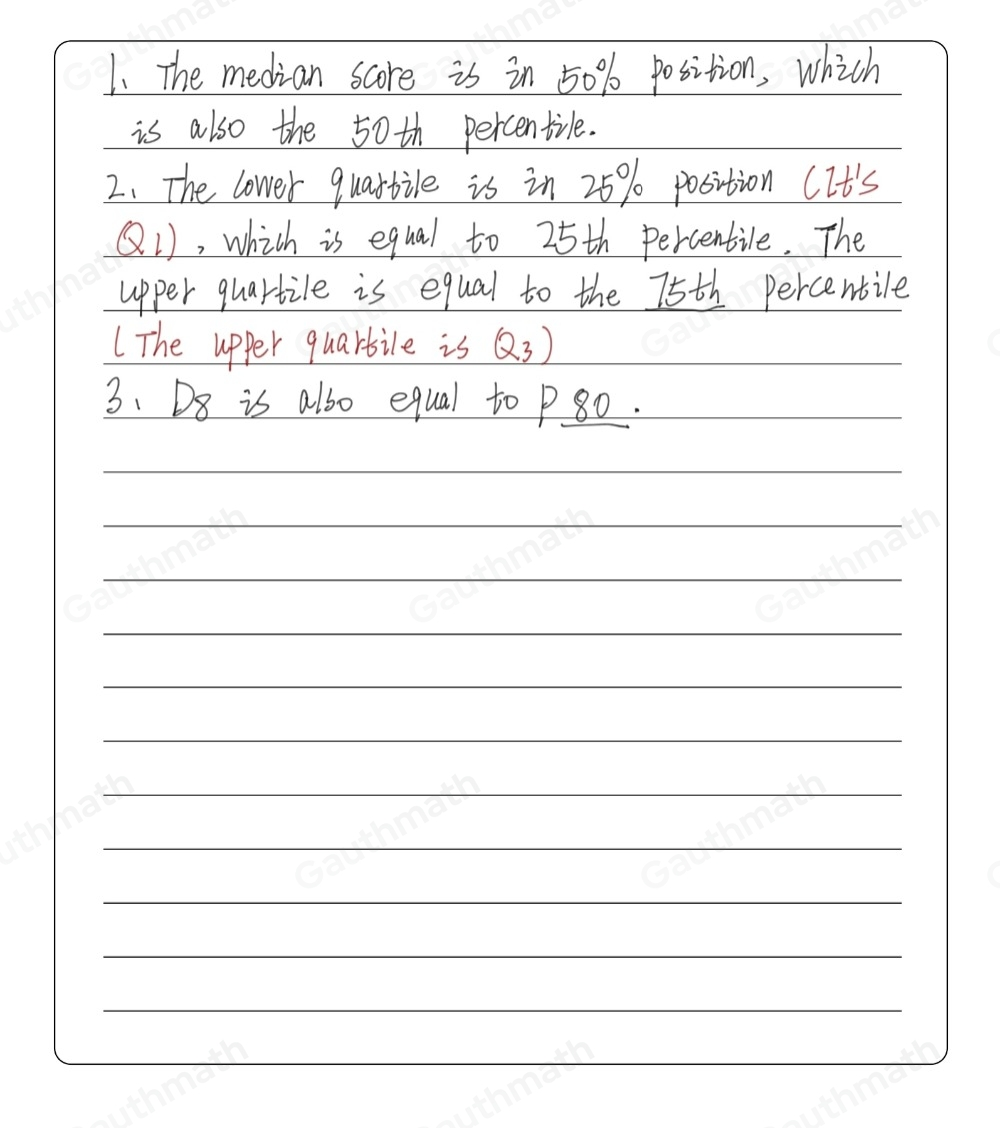 1、The median score is in 50% position, which
is also the 50th percentile.
2、The lower quartile is in 25% position (It's
Q1), which is equal to 25th percentile. The
upper quartile is equal to the 75th percentile
(The upper quartile is Q3)
3、D8 is also equal to P 80.
Gauthmath